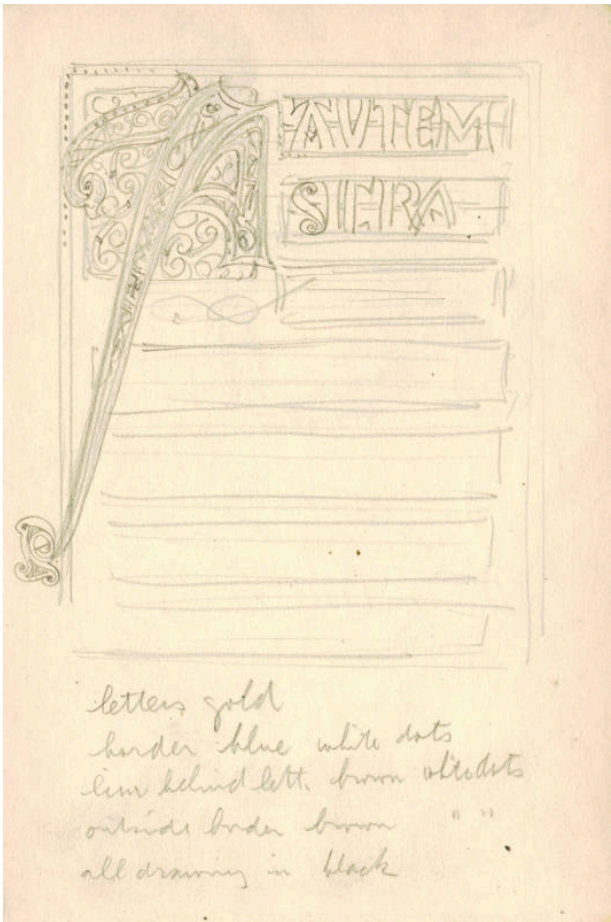 AVTEM
letters gold
border blue white dots
line behind lett. brown white dots
outside border brown " "
all drawing in black